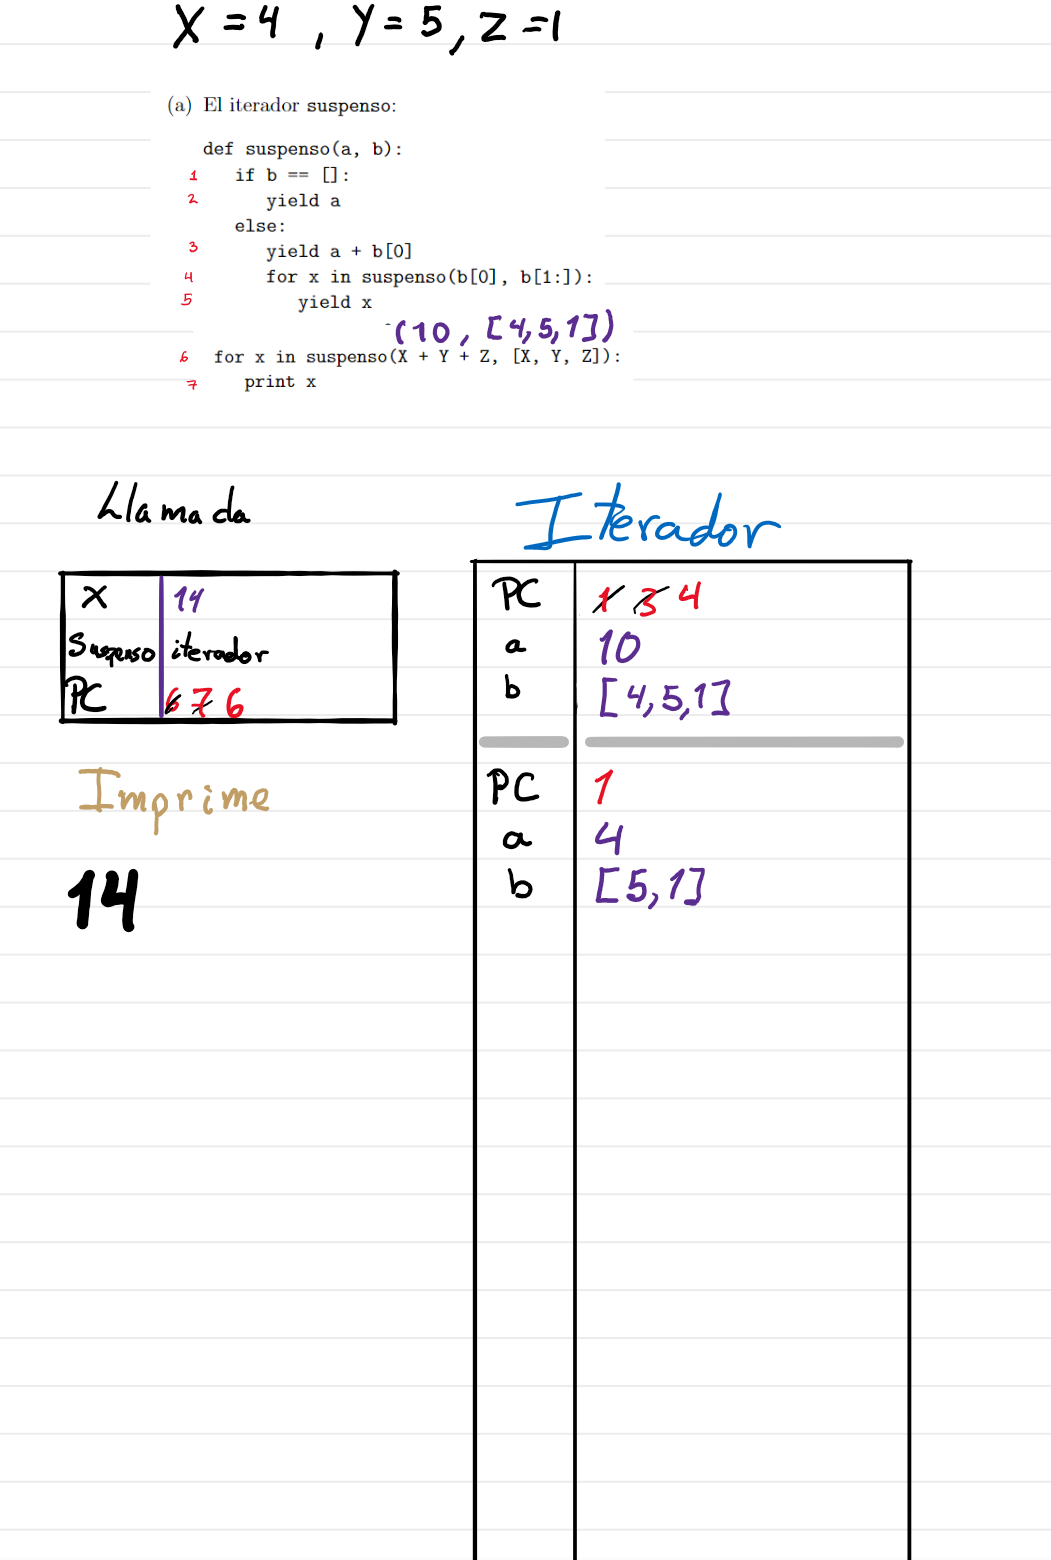 X = 4 , Y = 5, Z = 1
(a) El iterador suspenso:
def suspenso(a, b):
1 if b == []:
2 yield a
else:
3 yield a + b[0]
4 for x in suspenso(b[0], b[1:]):
5 yield x
(10, [4,5,1])
6 for x in suspenso(X + Y + Z, [X, Y, Z]):
7 print x
Llamada
Iterador
X 14
Suspenso iterador
PC 6 7 6
PC 1 3 4
a 10
b [4,5,1]
Imprime
14
PC 1
a 4
b [5,1]